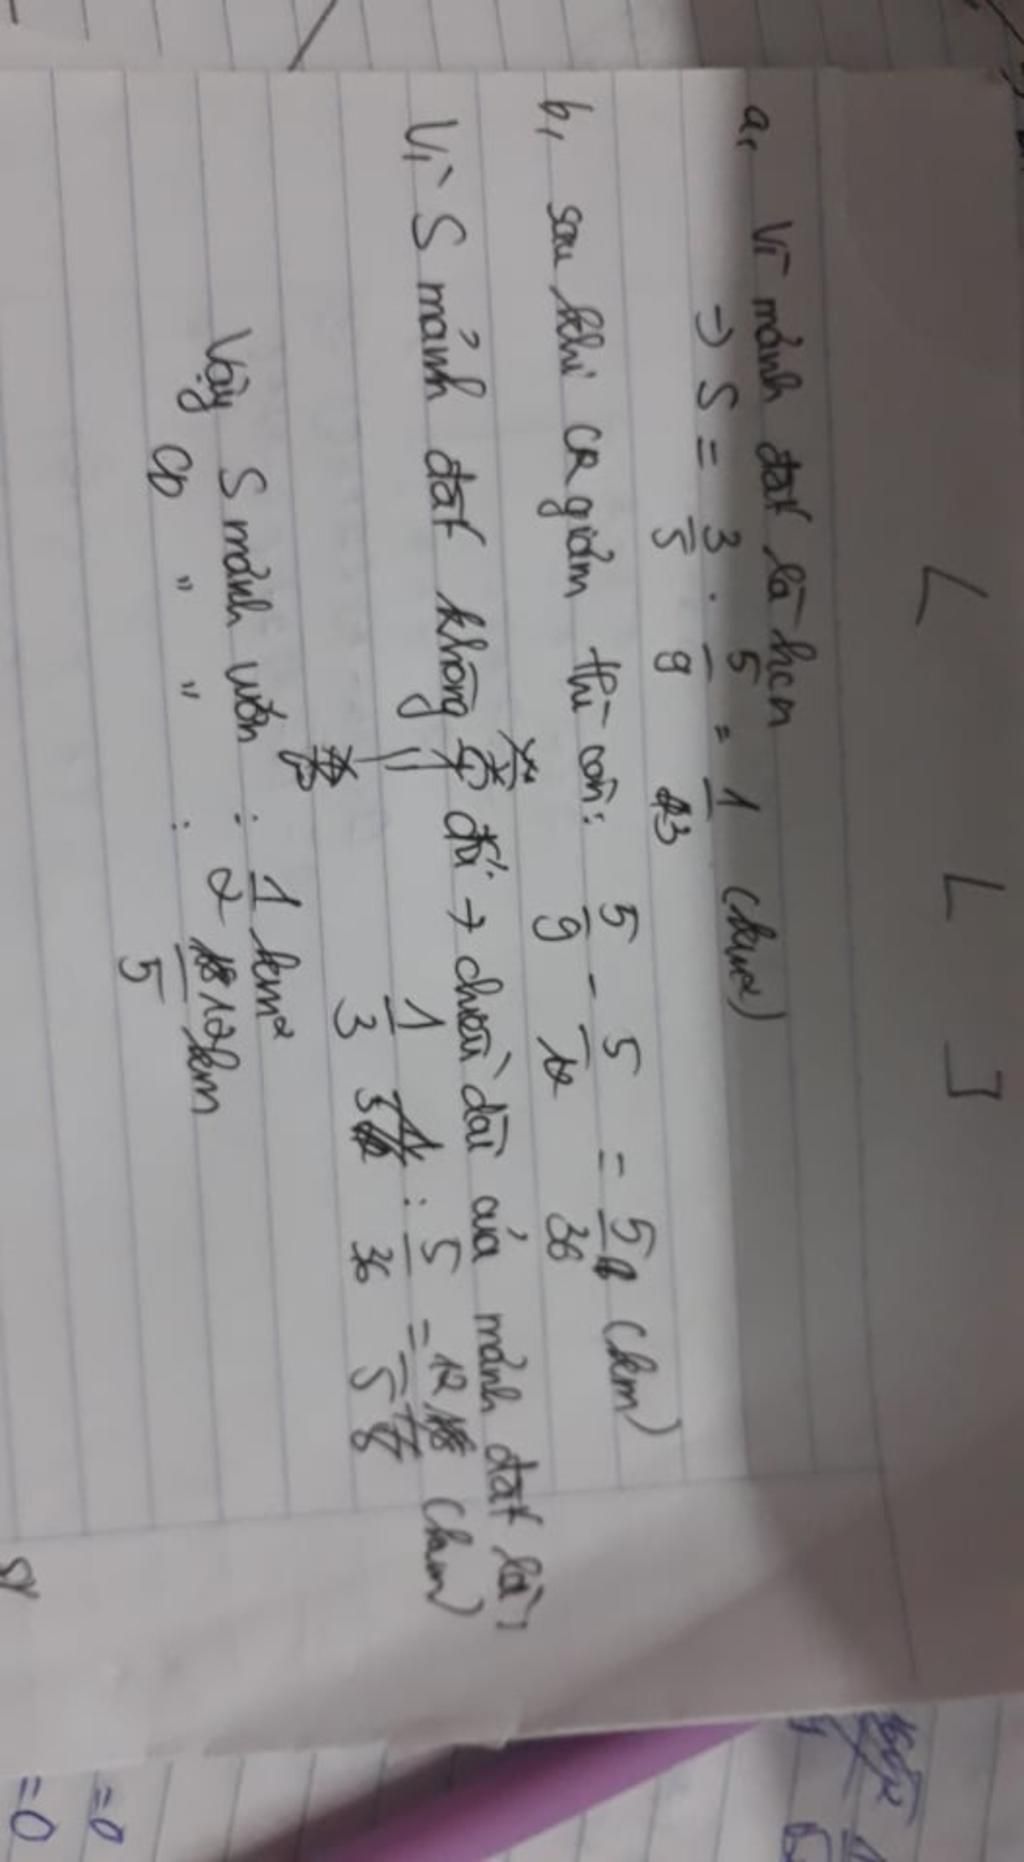 a, Vì mảnh đất là hcn
→ S = 3/5 . 5/9 = 1/3 (km²)
b, sau khi CR giảm thì còn: 5/9 - 5/12 = 5/36 (km)
Vì S mảnh đất không đổi → chiều dài của mảnh đất là:
1/3 : 5/36 = 12/5 (km)
Vậy S mảnh vườn : 1/2 km²
CD " " : 12/5 km
=0
=0